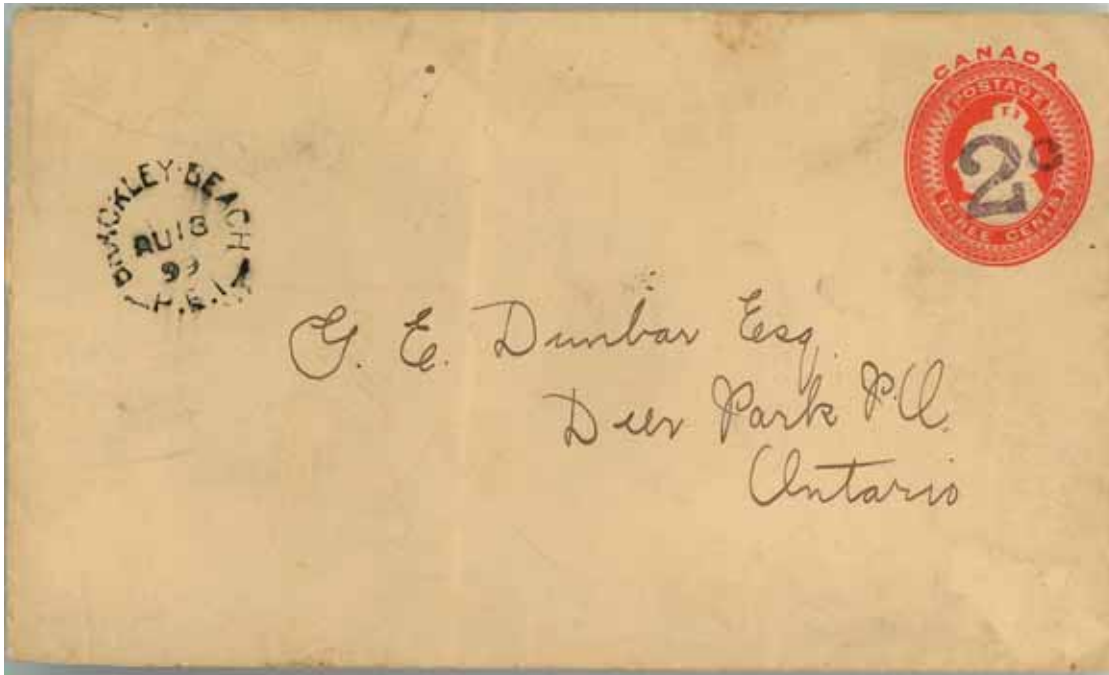 CANADA
POSTAGE
2c
THREE CENTS
BRACKLEY-BEACH
AU 18
99
P.E.I.
G. E. Dunbar Esq.
Deer Park P.O.
Ontario